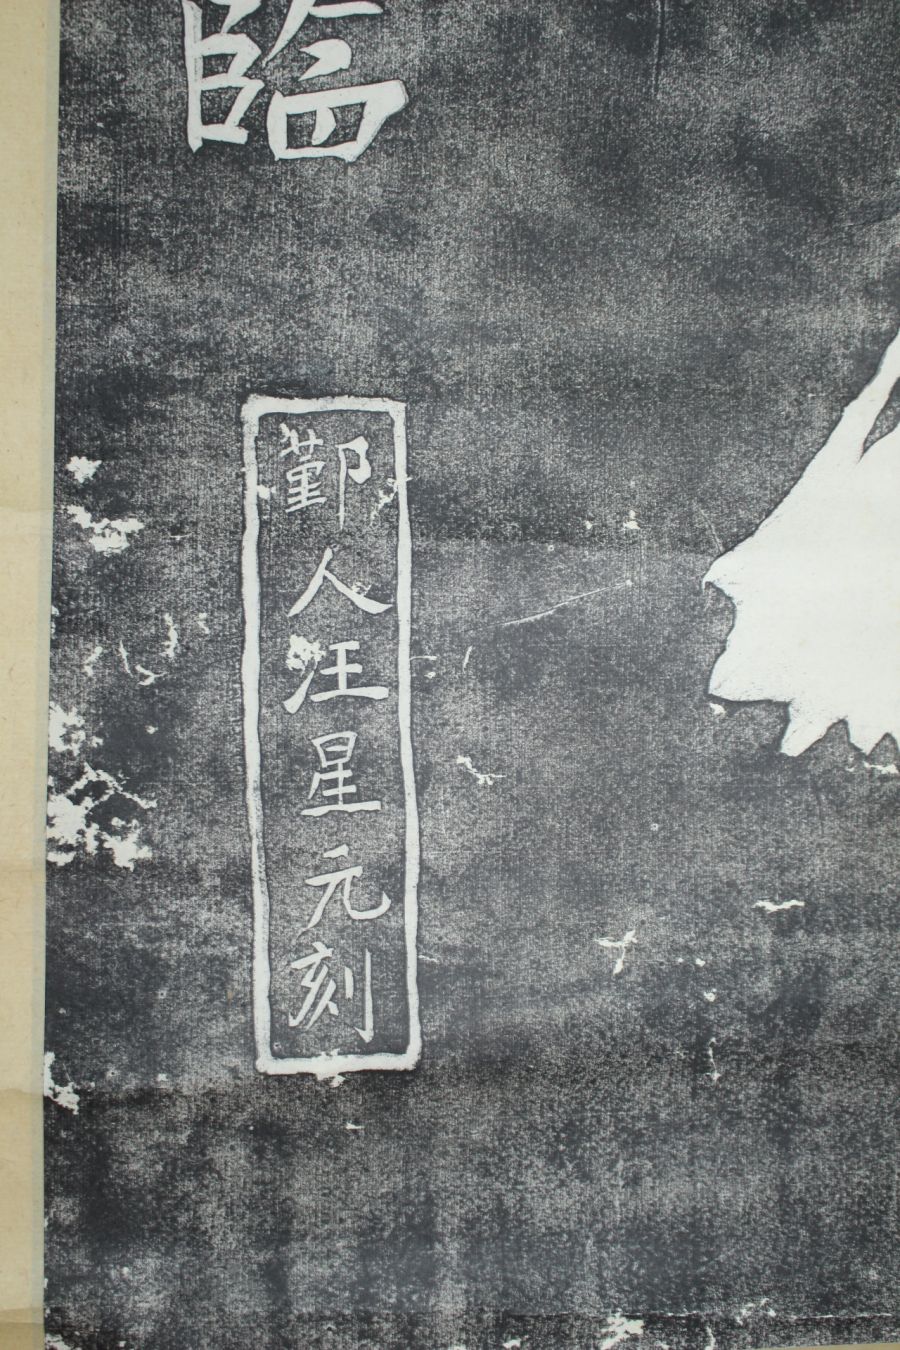 臨
鄞人汪星元刻